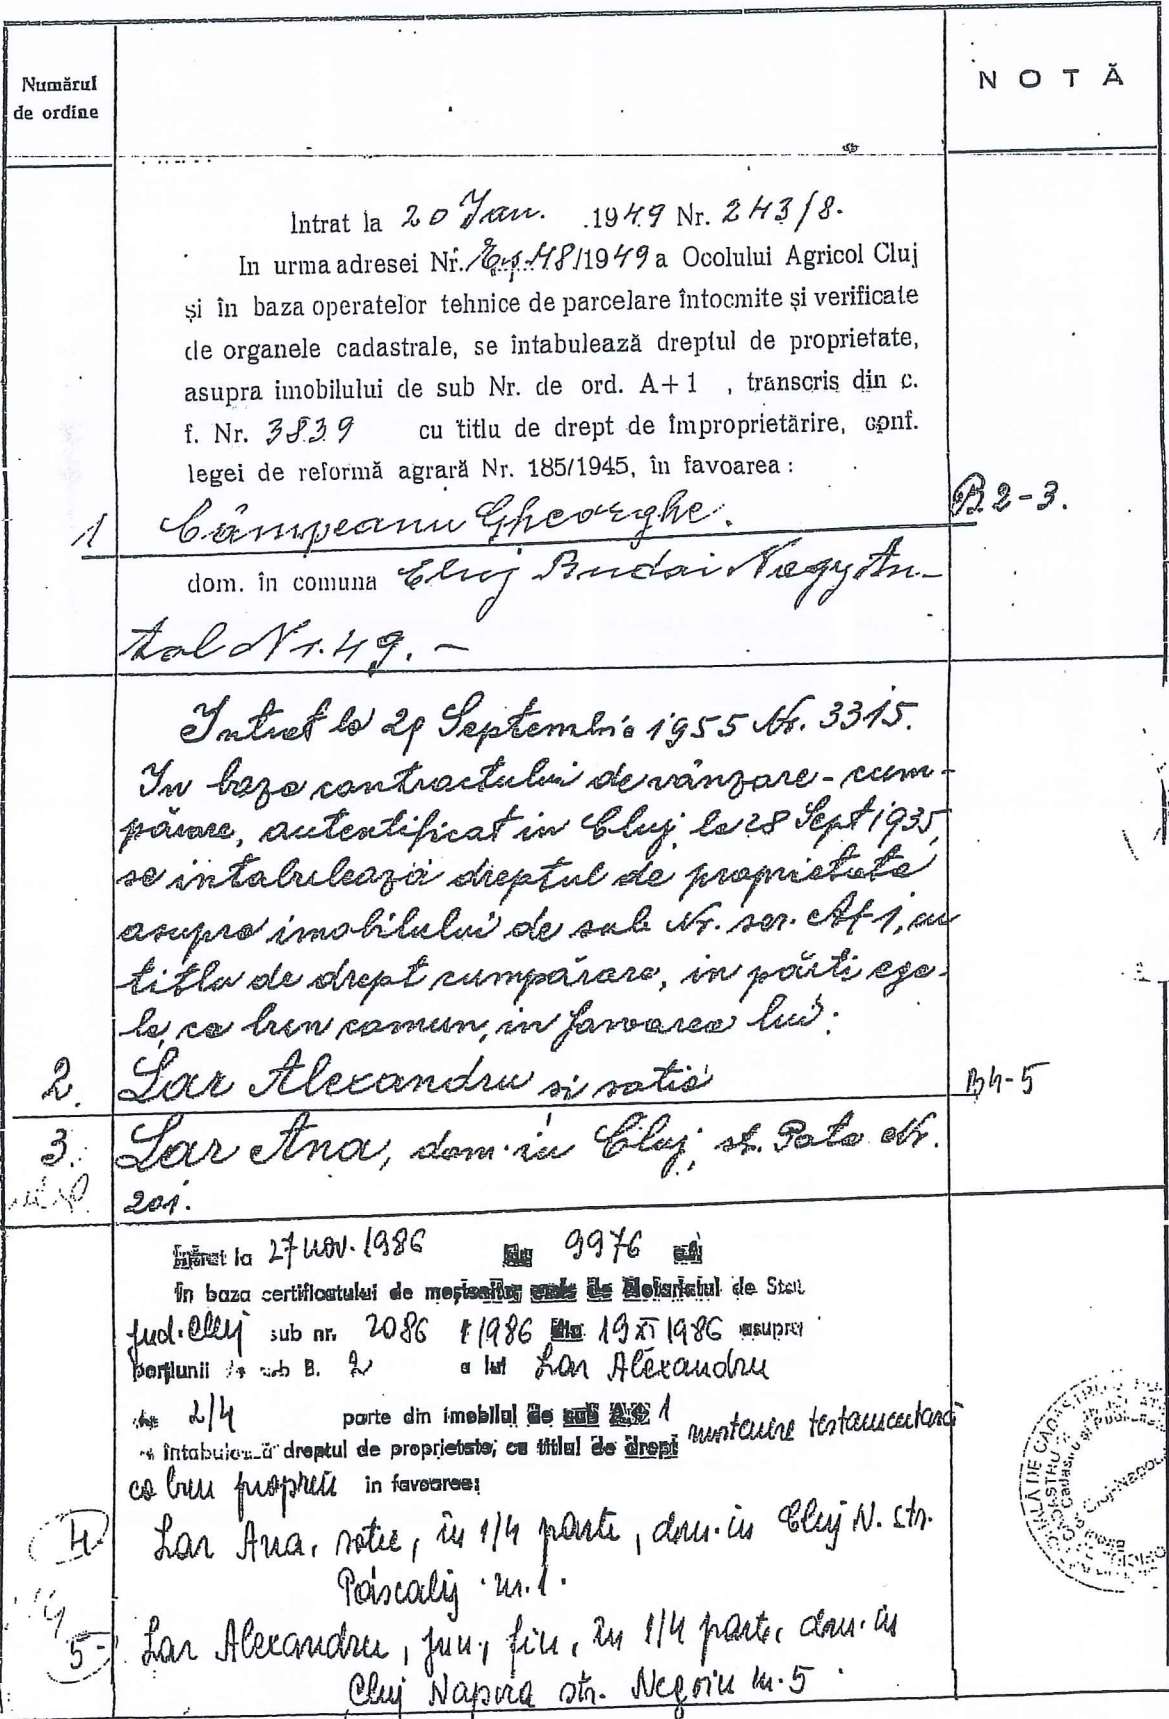 Numărul
de ordine
NOTĂ
Intrat la 20 Jan. .1949 Nr. 243/8.
In urma adresei Nr. 48/1949 a Ocolului Agricol Cluj
și în baza operatelor tehnice de parcelare întocmite și verificate
de organele cadastrale, se întabulează dreptul de proprietate,
asupra imobilului de sub Nr. de ord. A+1 , transcris din c.
f. Nr. 3839 cu titlu de drept de împroprietărire, conf.
legei de reformă agrară Nr. 185/1945, în favoarea :
1 Câmpeanu Gheorghe. B 2-3.
dom. în comuna Cluj Budai Nagy An-
tal Nr. 49. -
Intrat la 29 Septembrie 1955 Nr. 3315.
In baza contractului de vânzare-cum-
părare, autentificat in Cluj la 28 Sept 1935,
se intabulează dreptul de proprietate
asupra imobilului de sub Nr. ser. A+1, cu
titlu de drept cumpărare, in părti ega-
le, ca bun comun, in favoarea lui:
2. Lar Alexandru si sotia B4-5
3. Lar Ana, dom. in Cluj, st. Pata Nr.
201.
Intrat la 27 nov. 1986 9976
În baza certificatului de moștenitor Notariatul de Stat
jud. Cluj sub nr. 2086 /1986 19 XI 1986 asupra
porțiunii de sub B. 2 a lui Lar Alexandru
de 2/4 parte din imobilul de sub A+ 1
se întabulează dreptul de proprietate, cu titlul de drept mostenire testamentară
ca bun propriu in favoarea:
4 Lar Ana, sotie, în 1/4 parte, dom. in Cluj N. str.
Páscalij nr. 1.
5 Lar Alexandru, jun., fiu, în 1/4 parte, dom. in
Cluj Napoca str. Negoiu nr. 5